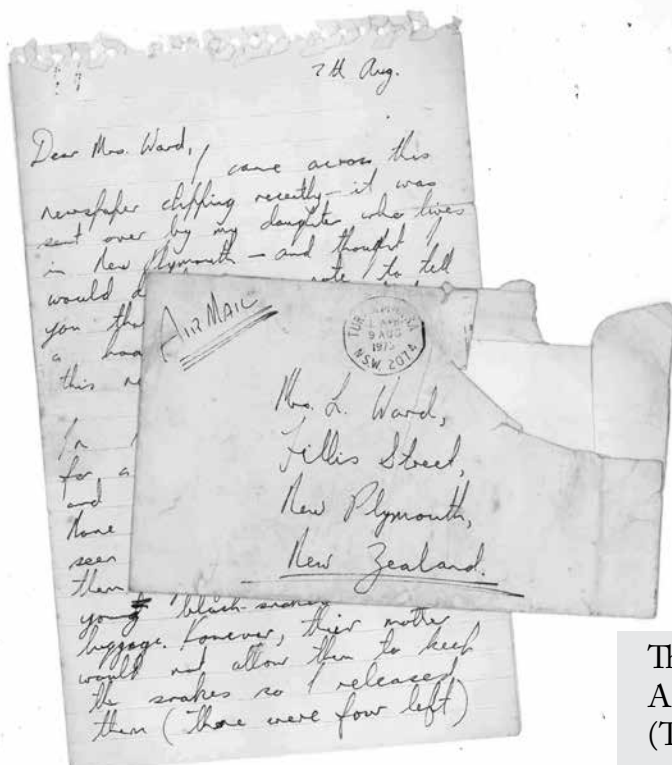 7th Aug.
Dear Mrs. Ward,
I came across this
newspaper clipping recently – it was
sent over by my daughter who lives
in New Plymouth – and thought I
would note to tell
you
a
this
In
for a
and
None
seen
them
young black snakes
luggage. However, their mother
would not allow them to keep
the snakes so I released
them (there were four left)
AIR MAIL
9 AUG
1975
N.S.W. 2074
Mrs. L. Ward,
Fillis Street,
New Plymouth,
New Zealand.
Th
A
(T